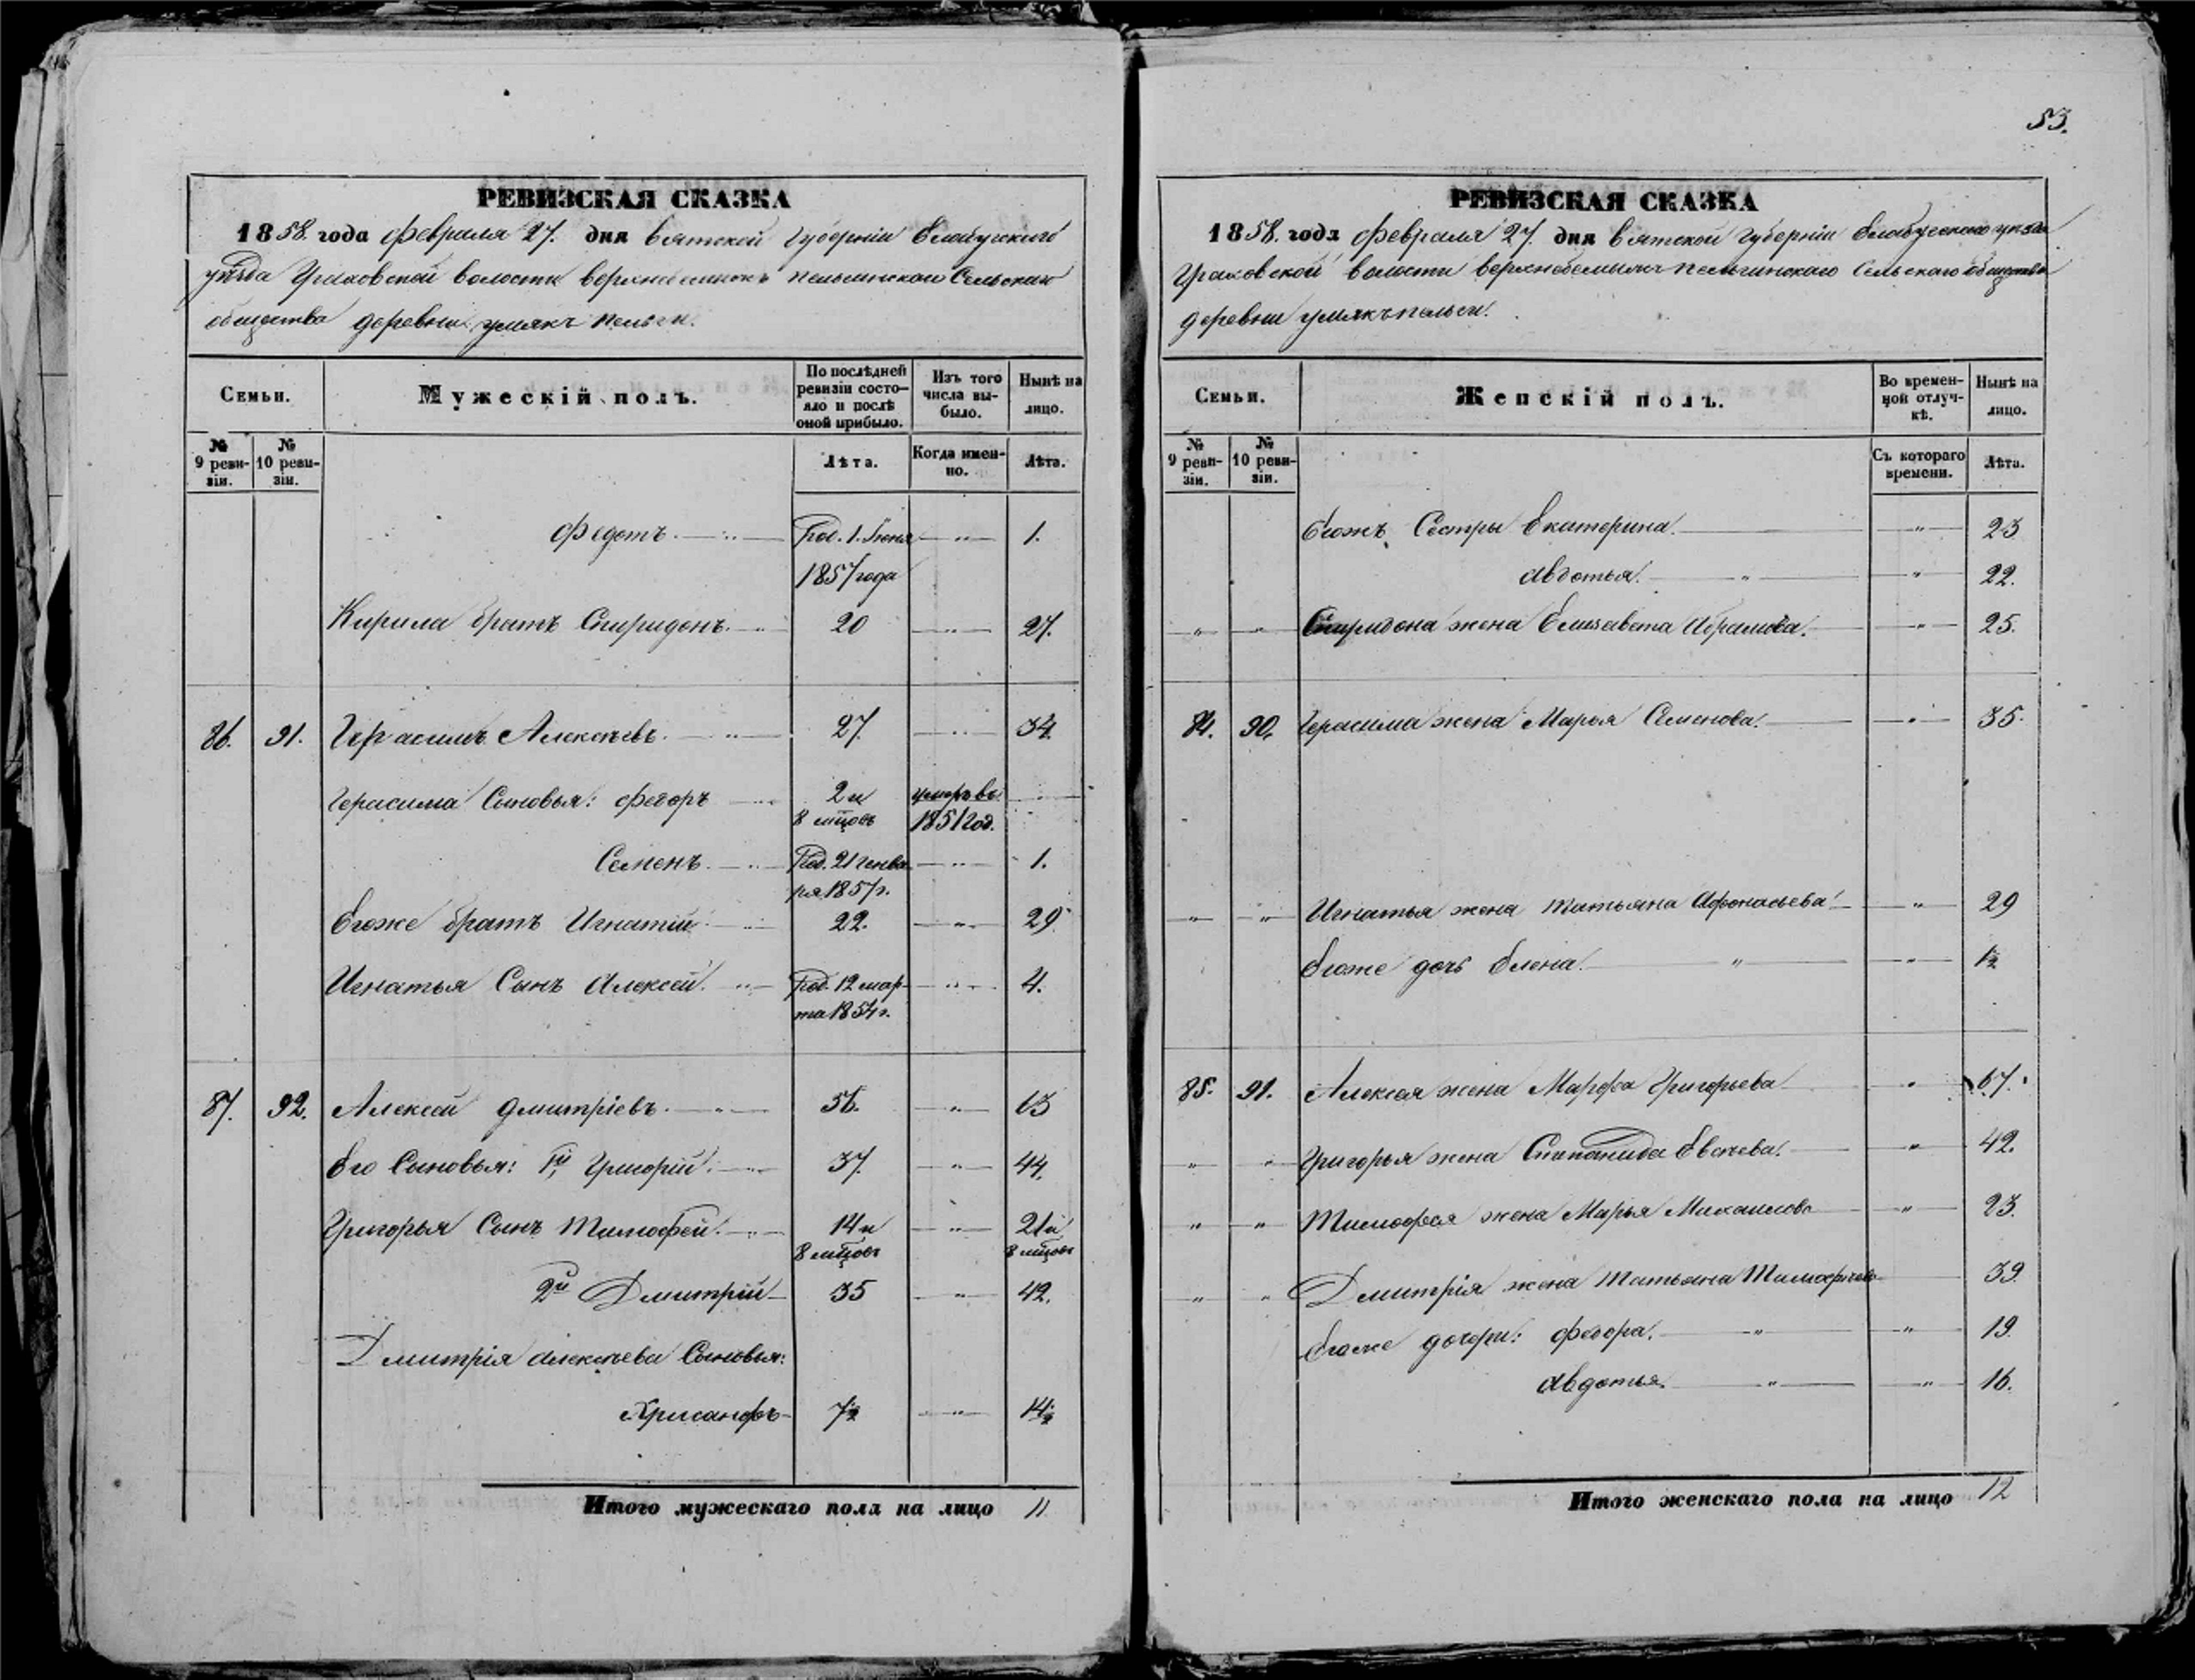 РЕВИЗСКАЯ СКАЗКА
1858. года февраля 27. дня вятской Губерніи Елабугскаго
уѣзда Граховской волости
общества деревни умякъ пельги.
Семьи.
Мужескій полъ.
По послѣдней ревизіи состояло и послѣ оной прибыло.
Изъ того числа выбыло.
Нынѣ на лицо.
№ 9 ревизіи.
№ 10 ревизіи.
Лѣта.
Когда именно.
Лѣта.
Федотъ. Род. 1. Іюня 1.
1857 года
Кирила братъ Спиридонъ. 20 27.
86. 91. Герасимъ Алексѣевъ. 27. 34.
Герасима Сыновья: федоръ 2 и умеръ въ
8 мцовъ 1851 год.
Семенъ. Род. 21 генва 1.
ря 1857 г.
Егоже братъ Игнатій 22. 29.
Игнатья Сынъ Алексей. Род. 12 мар- 4.
та 1854 г.
87. 92. Алексей Дмитріевъ. 56. 63
Его Сыновья: 1й Григорій. 37. 44.
Григорья Сынъ Тимофей. 14 и 21 и
8 мцовъ 8 мцовъ
2й Дмитрій 35 42.
Дмитрія Алексѣева Сыновья:
Хрисанфъ 7½ 14½
Итого мужескаго пола на лицо 11
53.
РЕВИЗСКАЯ СКАЗКА
1858. года февраля 27. дня вятской Губерніи Елабугскаго уѣзда
Граховской волости Сельскаго общества
деревни умякъ пельги.
Семьи.
Женскій полъ.
Во временной отлучкѣ.
Нынѣ на лицо.
№ 9 ревизіи.
№ 10 ревизіи.
Съ котораго времени.
Лѣта.
Егожъ Сестры Екатерина. 23
Авдотья. 22.
Спиридона жена Елизавета Абрамова. 25.
84. 90. Герасима жена Марья Семенова. 35.
Игнатья жена татьяна Афонасьева 29
Егоже дочь Елена. 1½
85. 91. Алексея жена Марфа Григорьева 67.
Григорья жена Степанида 42.
Тимофея жена Марья Михаилова 23.
Дмитрія жена татьяна Тимофеева 39.
Егоже дочери: федора. 19.
Авдотья. 16.
Итого женскаго пола на лицо 12